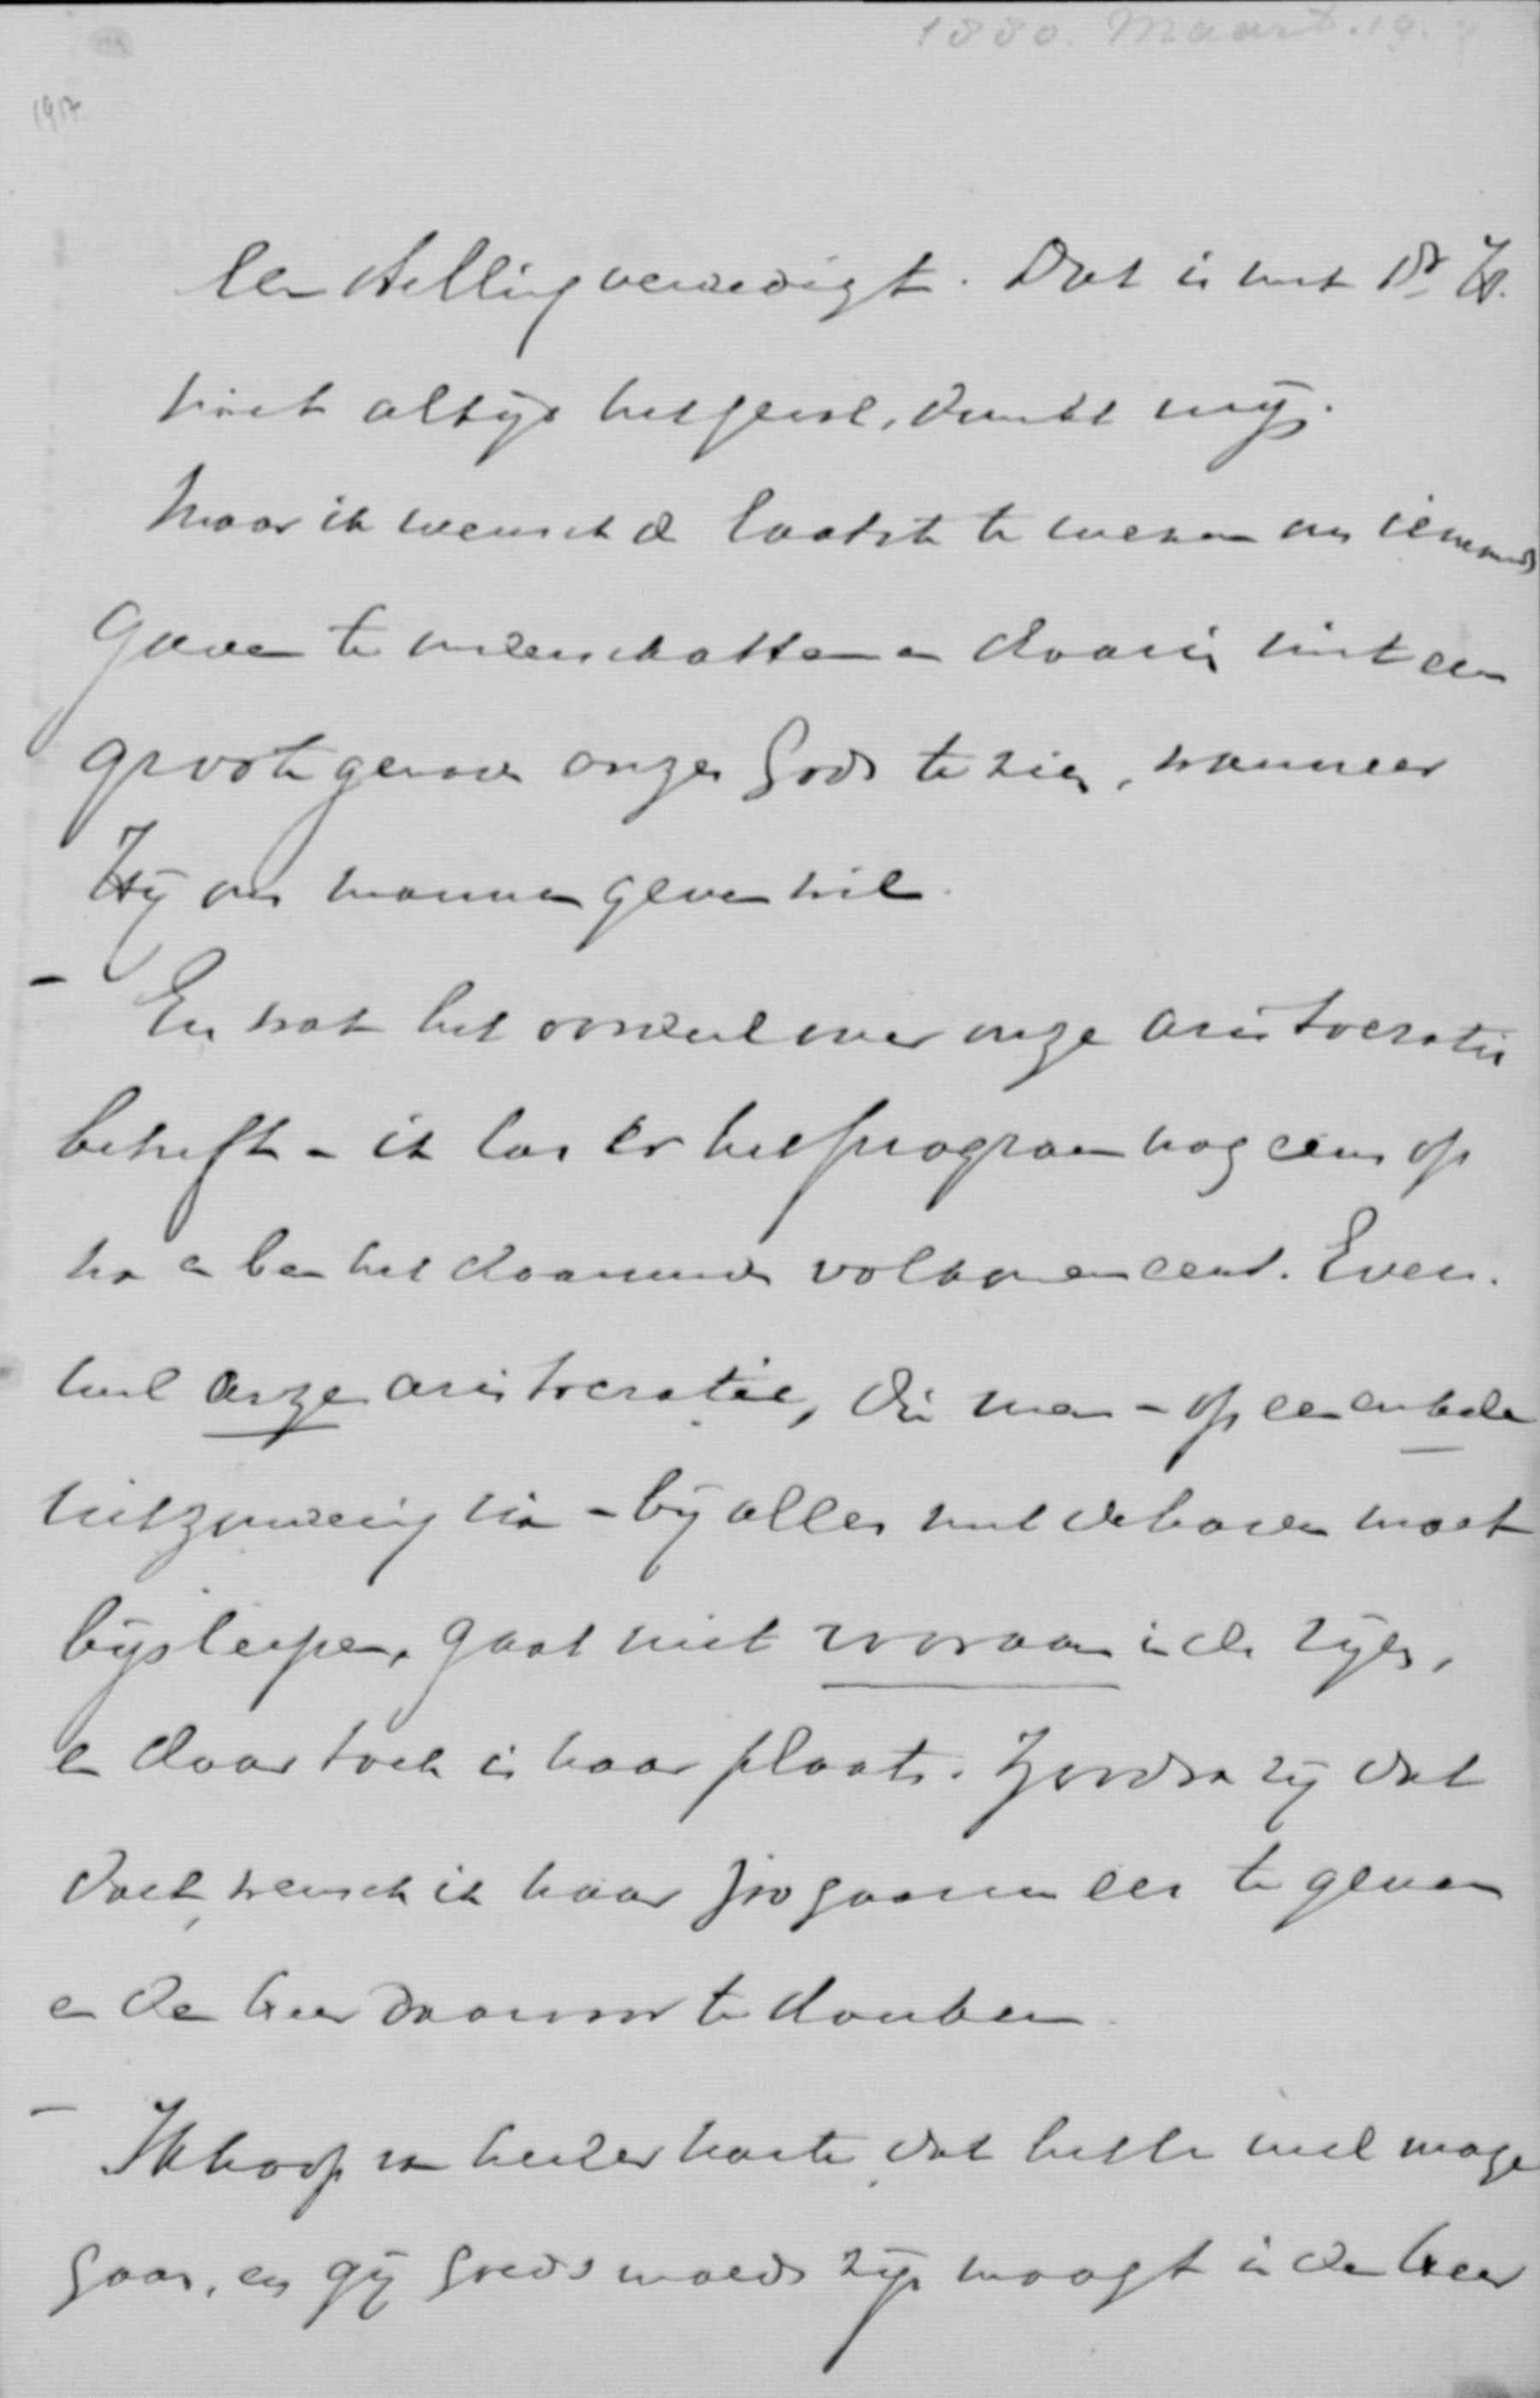 1880. Maart. 19.
1917.
een stelling verdedigt. Dat is met Dr H.
niet altijd het geval, dunkt mij.
Maar ik wensch de laatste te wezen om iemands
gaven te onderschatten en daarin niet een
groote genade onzes Gods te zien, wanneer
Hij ons mannen geven wil.
- En wat het oordeel over onze aristocratie
betreft - ik las er het program nog eens op
na en ben het daarmede volkomen eens. Even-
wel onze aristocratie, die men - op een enkele
uitzondering na - bij alles met de haren moet
bijsleepen, gaat niet vooraan in de rijen,
en daar toch is haar plaats. Zoodra zij dat
doet, wensch ik haar zoo gaarne eer te geven
en den Heer daarvoor te danken.
- Ik hoop van heeler harte dat het U wel moge
gaan, en gij goeds moeds zijn moogt in den Heer